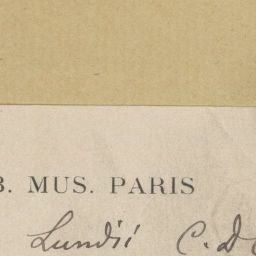 3. MUS. PARIS
Lundii C. D